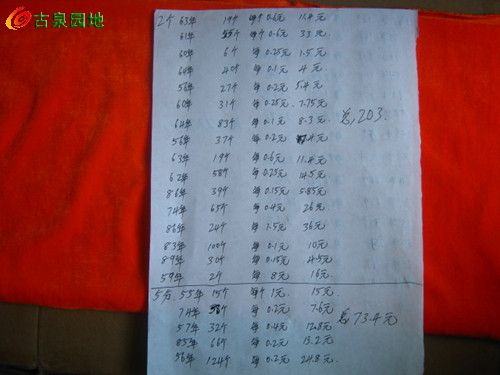 古泉园地
2分 63年 19个 每个0.6元 11.4元
61年 55个 每个0.6元 33元
60年 6个 每0.25元 1.5元
64年 40个 每0.1元 4元
56年 27个 每0.2元 5.4元
60年 31个 每0.25元 7.75元
64年 83个 每0.1元 8.3元 总,203.
56年 37个 每0.2元 7.4元
63年 19个 每0.6元 11.4元
62年 58个 每0.25元 14.5元
86年 39个 每0.15元 5.85元
74年 65个 每0.4元 26元
86年 24个 每1.5元 36元
83年 100个 每0.1元 10元
89年 30个 每0.15元 4.5元
59年 2个 每8元 16元
5分 55年 15个 每个1元 15元
74年 38个 每0.2元 7.6元 总73.4元
57年 32个 每0.4元 12.8元
85年 66个 每0.2元 13.2元
56年 124个 每0.2元 24.8元